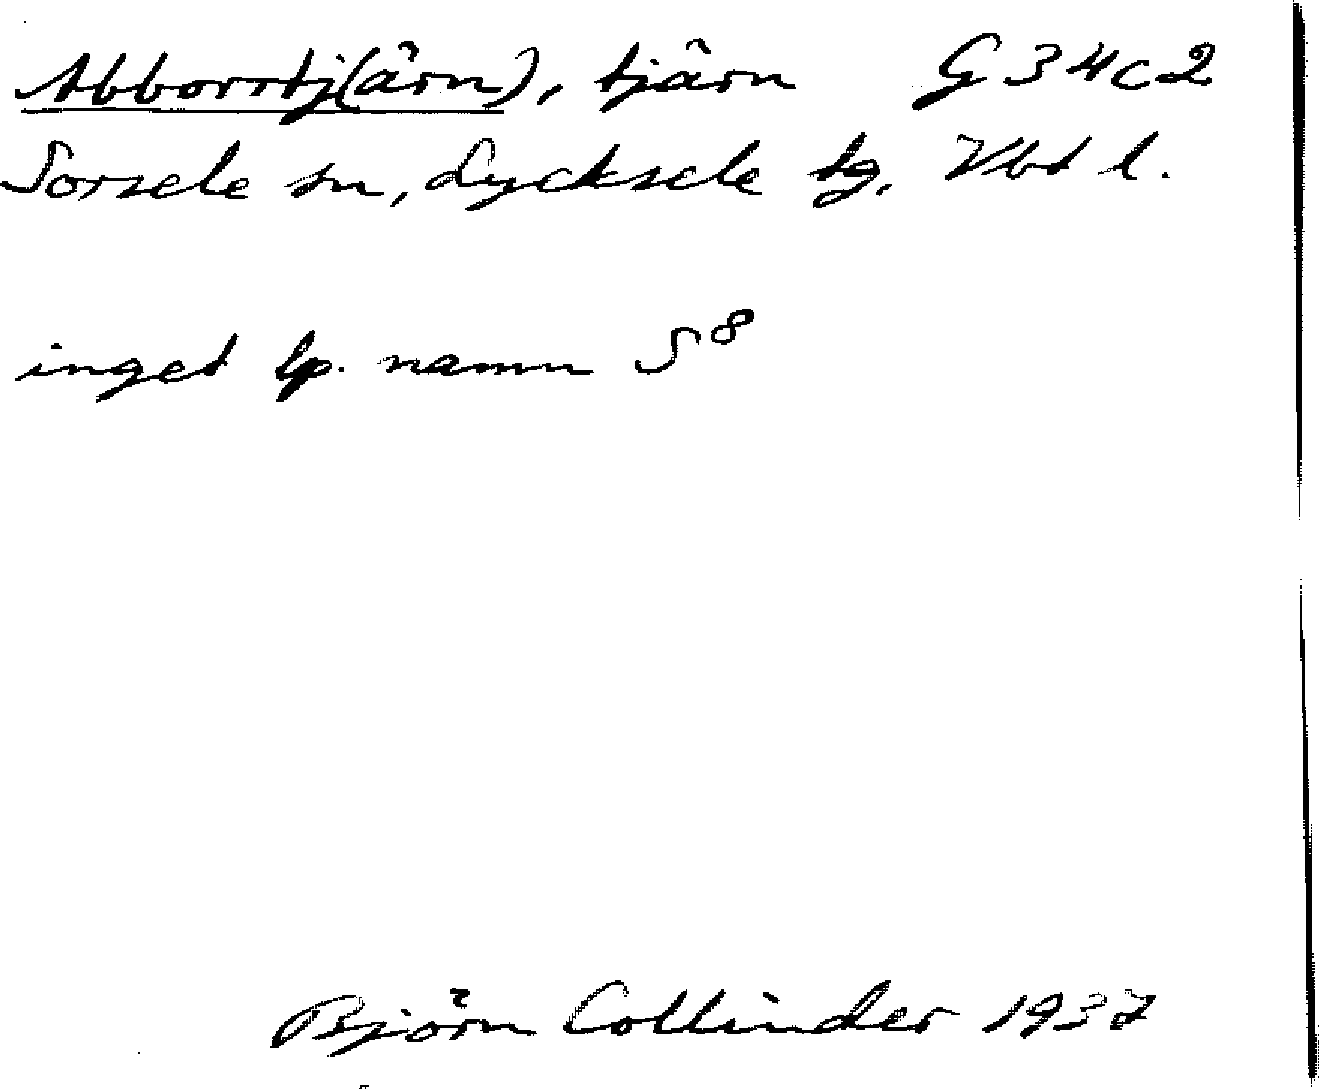 Abborrtj(ärn), tjärn G 34c2
Sorsele sn, Lycksele tg. Vbt l.
inget lp. namn S⁸
Björn Collinder 1937